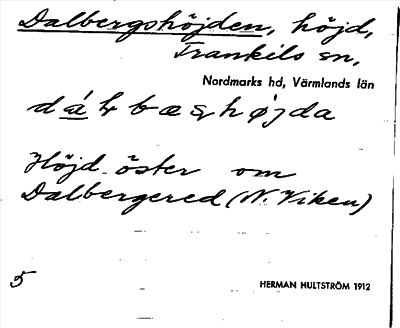 Dalbergshöjden, höjd,
Trankils sn,
Nordmarks hd, Värmlands län
Höjd öster om
Dalbergered (N. Viken)
5
HERMAN HULTSTRÖM 1912